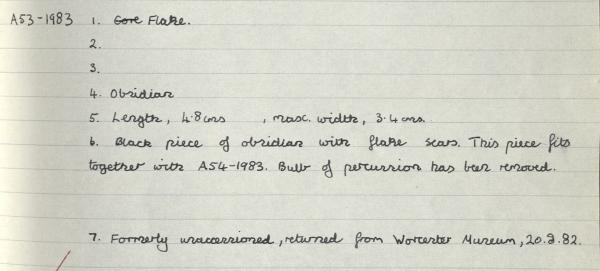 A53-1983 1. Core Flake.
2.
3.
4. Obsidian
5. Length, 4.8cms , max. width, 3.4cms.
6. Black piece of obsidian with flake scars. This piece fits
together with A54-1983. Bulb of percussion has been removed.
7. Formerly unaccessioned, returned from Worcester Museum, 20.8.82.